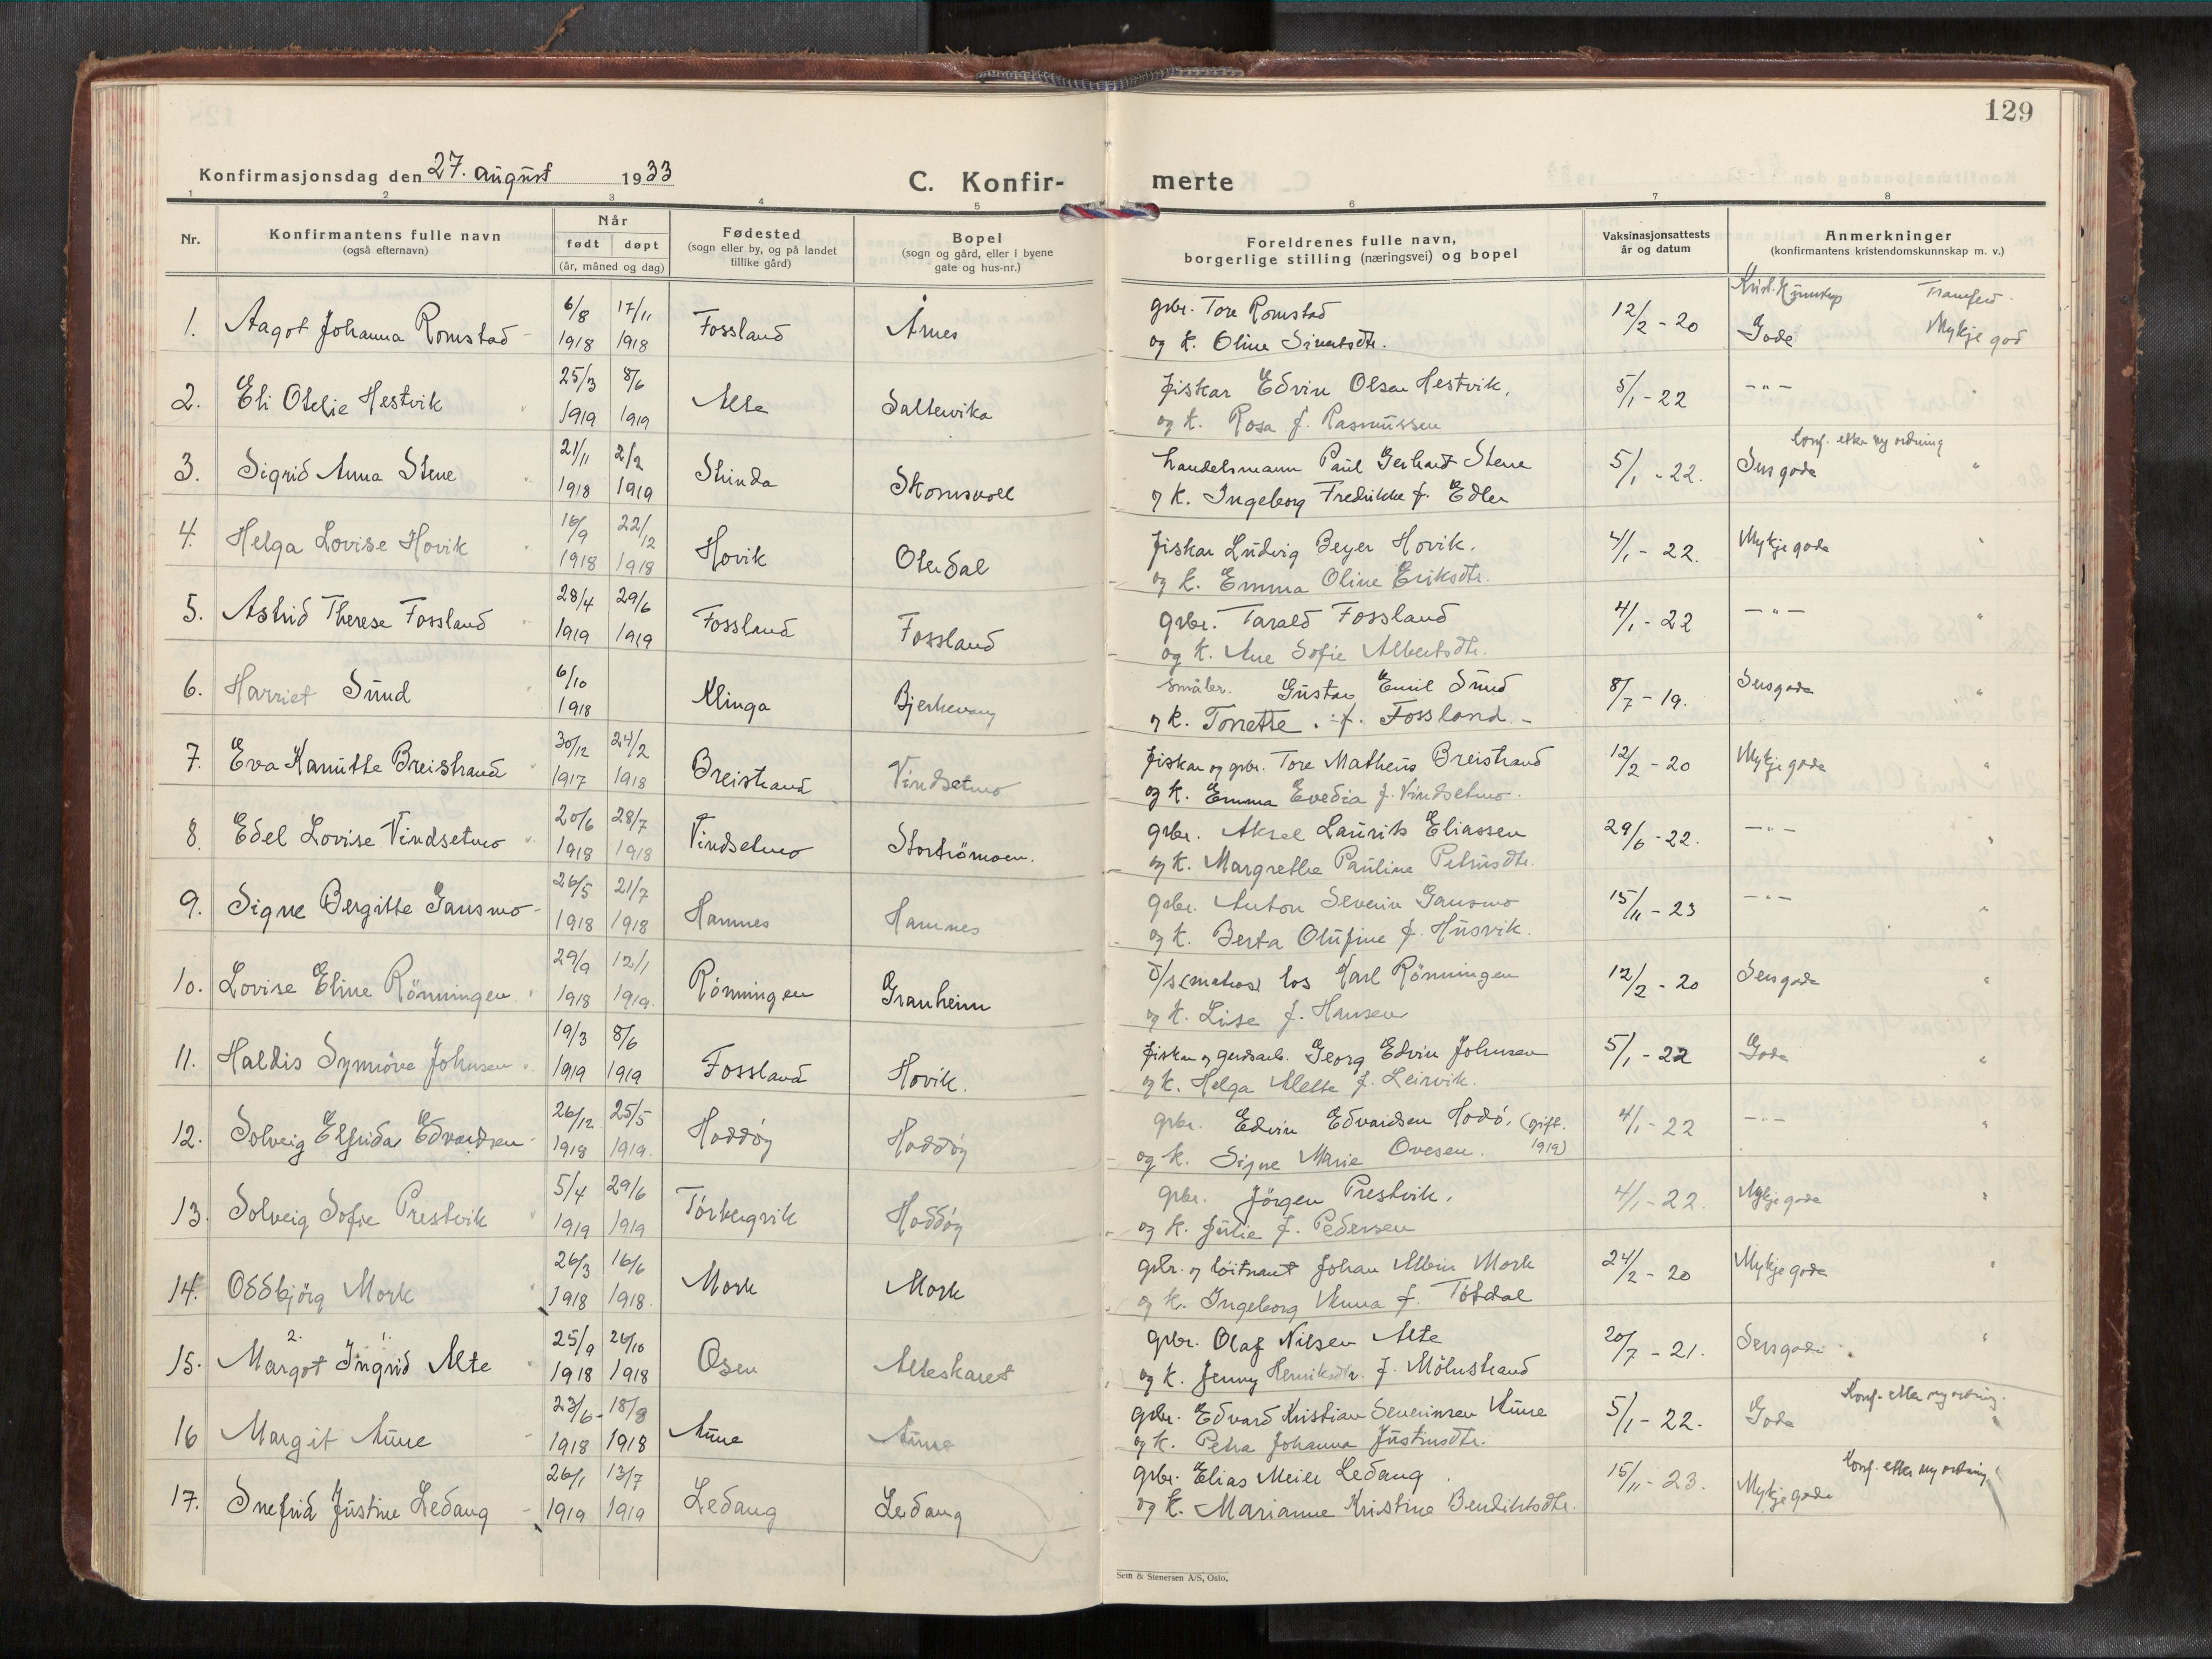 129
Konfirmasjonsdag den 27. august 1933
C. Konfir- merte
1 2 3 4 5 6 7 8
Nr.
Konfirmantens fulle navn
(også efternavn)
Når
født døpt
(år, måned og dag)
Fødested
(sogn eller by, og på landet
tillike gård)
Bopel
(sogn og gård, eller i byene
gate og hus-nr.)
Foreldrenes fulle navn,
borgerlige stilling (næringsvei) og bopel
Vaksinasjonsattests
år og datum
Anmerkninger
(konfirmantens kristendomskunnskap m. v.)
Framferd.
1. Aagot Johanna Romstad 6/8 1918 17/11 1918 Fossland Årnes gbr. Tore Romstad 12/2 - 20 Gode Mykje god
og k. Oline Sivertsdtr.
2. Eli Otelie Hestvik 25/3 1919 8/6 1919 Alte Saltervika fiskar Edvin Olsen Hestvik, 5/1 - 22 - " - "
og k. Rosa f. Rasmussen
Konf. etter ny ordning
3. Sigrid Anna Stene 21/11 1918 2/2 1919 Strinda Skomsvoll handelsmann Paul Gerhard Stene 5/1 - 22. Sers gode "
og k. Ingeborg Fredrikke f. Edler
4. Helga Lovise Hovik 16/9 1918 22/12 1918 Hovik Oterdal fiskar Ludvig Beyer Hovik. 4/1 - 22. Mykje gode "
og k. Emma Oline Eriksdtr.
5. Astrid Therese Fossland 28/4 1919 29/6 1919 Fossland Fossland gbr. Tarald Fossland 4/1 - 22 - " - "
og k. Ane Sofie Albertsdtr.
6. Harriet Sund 6/10 1918 Klinga Bjerkevang småbr. Gustav Emil Sund 8/7 - 19. Sers gode "
og k. Torrette f. Fossland -
7. Eva Kamitte Breistrand 30/12 1917 24/2 1918 Breistrand Vindsetmo fiskar og gbr. Tore Matheus Breistrand 12/2 - 20 Mykje gode "
og k. Emma Evedia f. Vindsetmo.
8. Edel Lovise Vindsetmo 20/6 1918 28/7 1918 Vindsetmo Storströmoen. gbr. Aksel Laurits Eliassen 29/6 - 22. - " - "
og k. Margrethe Pauline Petrusdtr.
9. Signe Bergitte Gansmo 26/5 1918 21/7 1918 Hamnes Hamnes gbr. Anton Severin Gansmo 15/11 - 23 - " - "
og k. Berta Olufine f. Husvik.
10. Lovise Eline Rönningen 29/9 1918 12/1 1919. Rönningen Granheim (matros) los Karl Rönningen 12/2 - 20 Sers gode "
og k. Lise f. Hansen
11. Haldis Synnöve Johnsen 19/3 1919 8/6 1919 Fossland Hovik. fiskar og Georg Edvin Johnsen 5/1 - 22 Gode "
og k. Helga Alette f. Leirvik.
12. Solveig Elfrida Edvardsen 26/12 1918 25/5 1919. Hoddöy Hoddöy gbr. Edvin Edvardsen Hodö, (gift. 1919) 4/1 - 22 - " - "
og k. Signe Marie Ovesen.
13. Solveig Sofie Prestvik 5/4 1919 29/6 1919 Torkegrvik Hoddöy gbr. Jörgen Prestvik. 4/1 - 22. Mykje gode "
og k. Julie f. Pedersen
14. Oddbjörg Mork 26/3 1918 16/6 1918. Mork Mork gbr. og löitnant Johan Albin Mork 24/2 - 20 Mykje gode "
og k. Ingeborg Anna f. Tötdal
2. 1.
15. Margot Ingrid Alte 25/9 1918 26/10 1918 Osen Alteskaret gbr. Olaf Nilsen Alte 20/7 - 21. Sers gode "
og k. Jenny Henriksdtr. f. Mölnstrand
Konf. etter ny ordning.
16 Margit Aune 23/6 1918 18/8 1918 Aune Aune gbr. Edvard Kristian Severinsen Aune 5/1 - 22. Gode "
og k. Petra Johanna Justinsdtr.
Konf. etter ny ordning
17. Snefrid Justine Ledang 26/1 1919 13/7 1919 Ledang Ledang gbr. Elias Meier Ledang 15/11 - 23. Mykje gode
og k. Marianne Kristine Bendiktsdtr.
Sem & Stenersen A/S, Oslo.